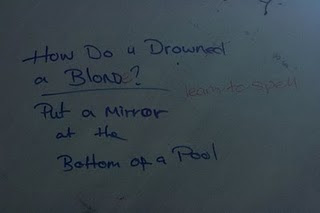 How Do u Drowned
a BLONDE?
learn to spell
Put a Mirror
at the
Bottom of a Pool